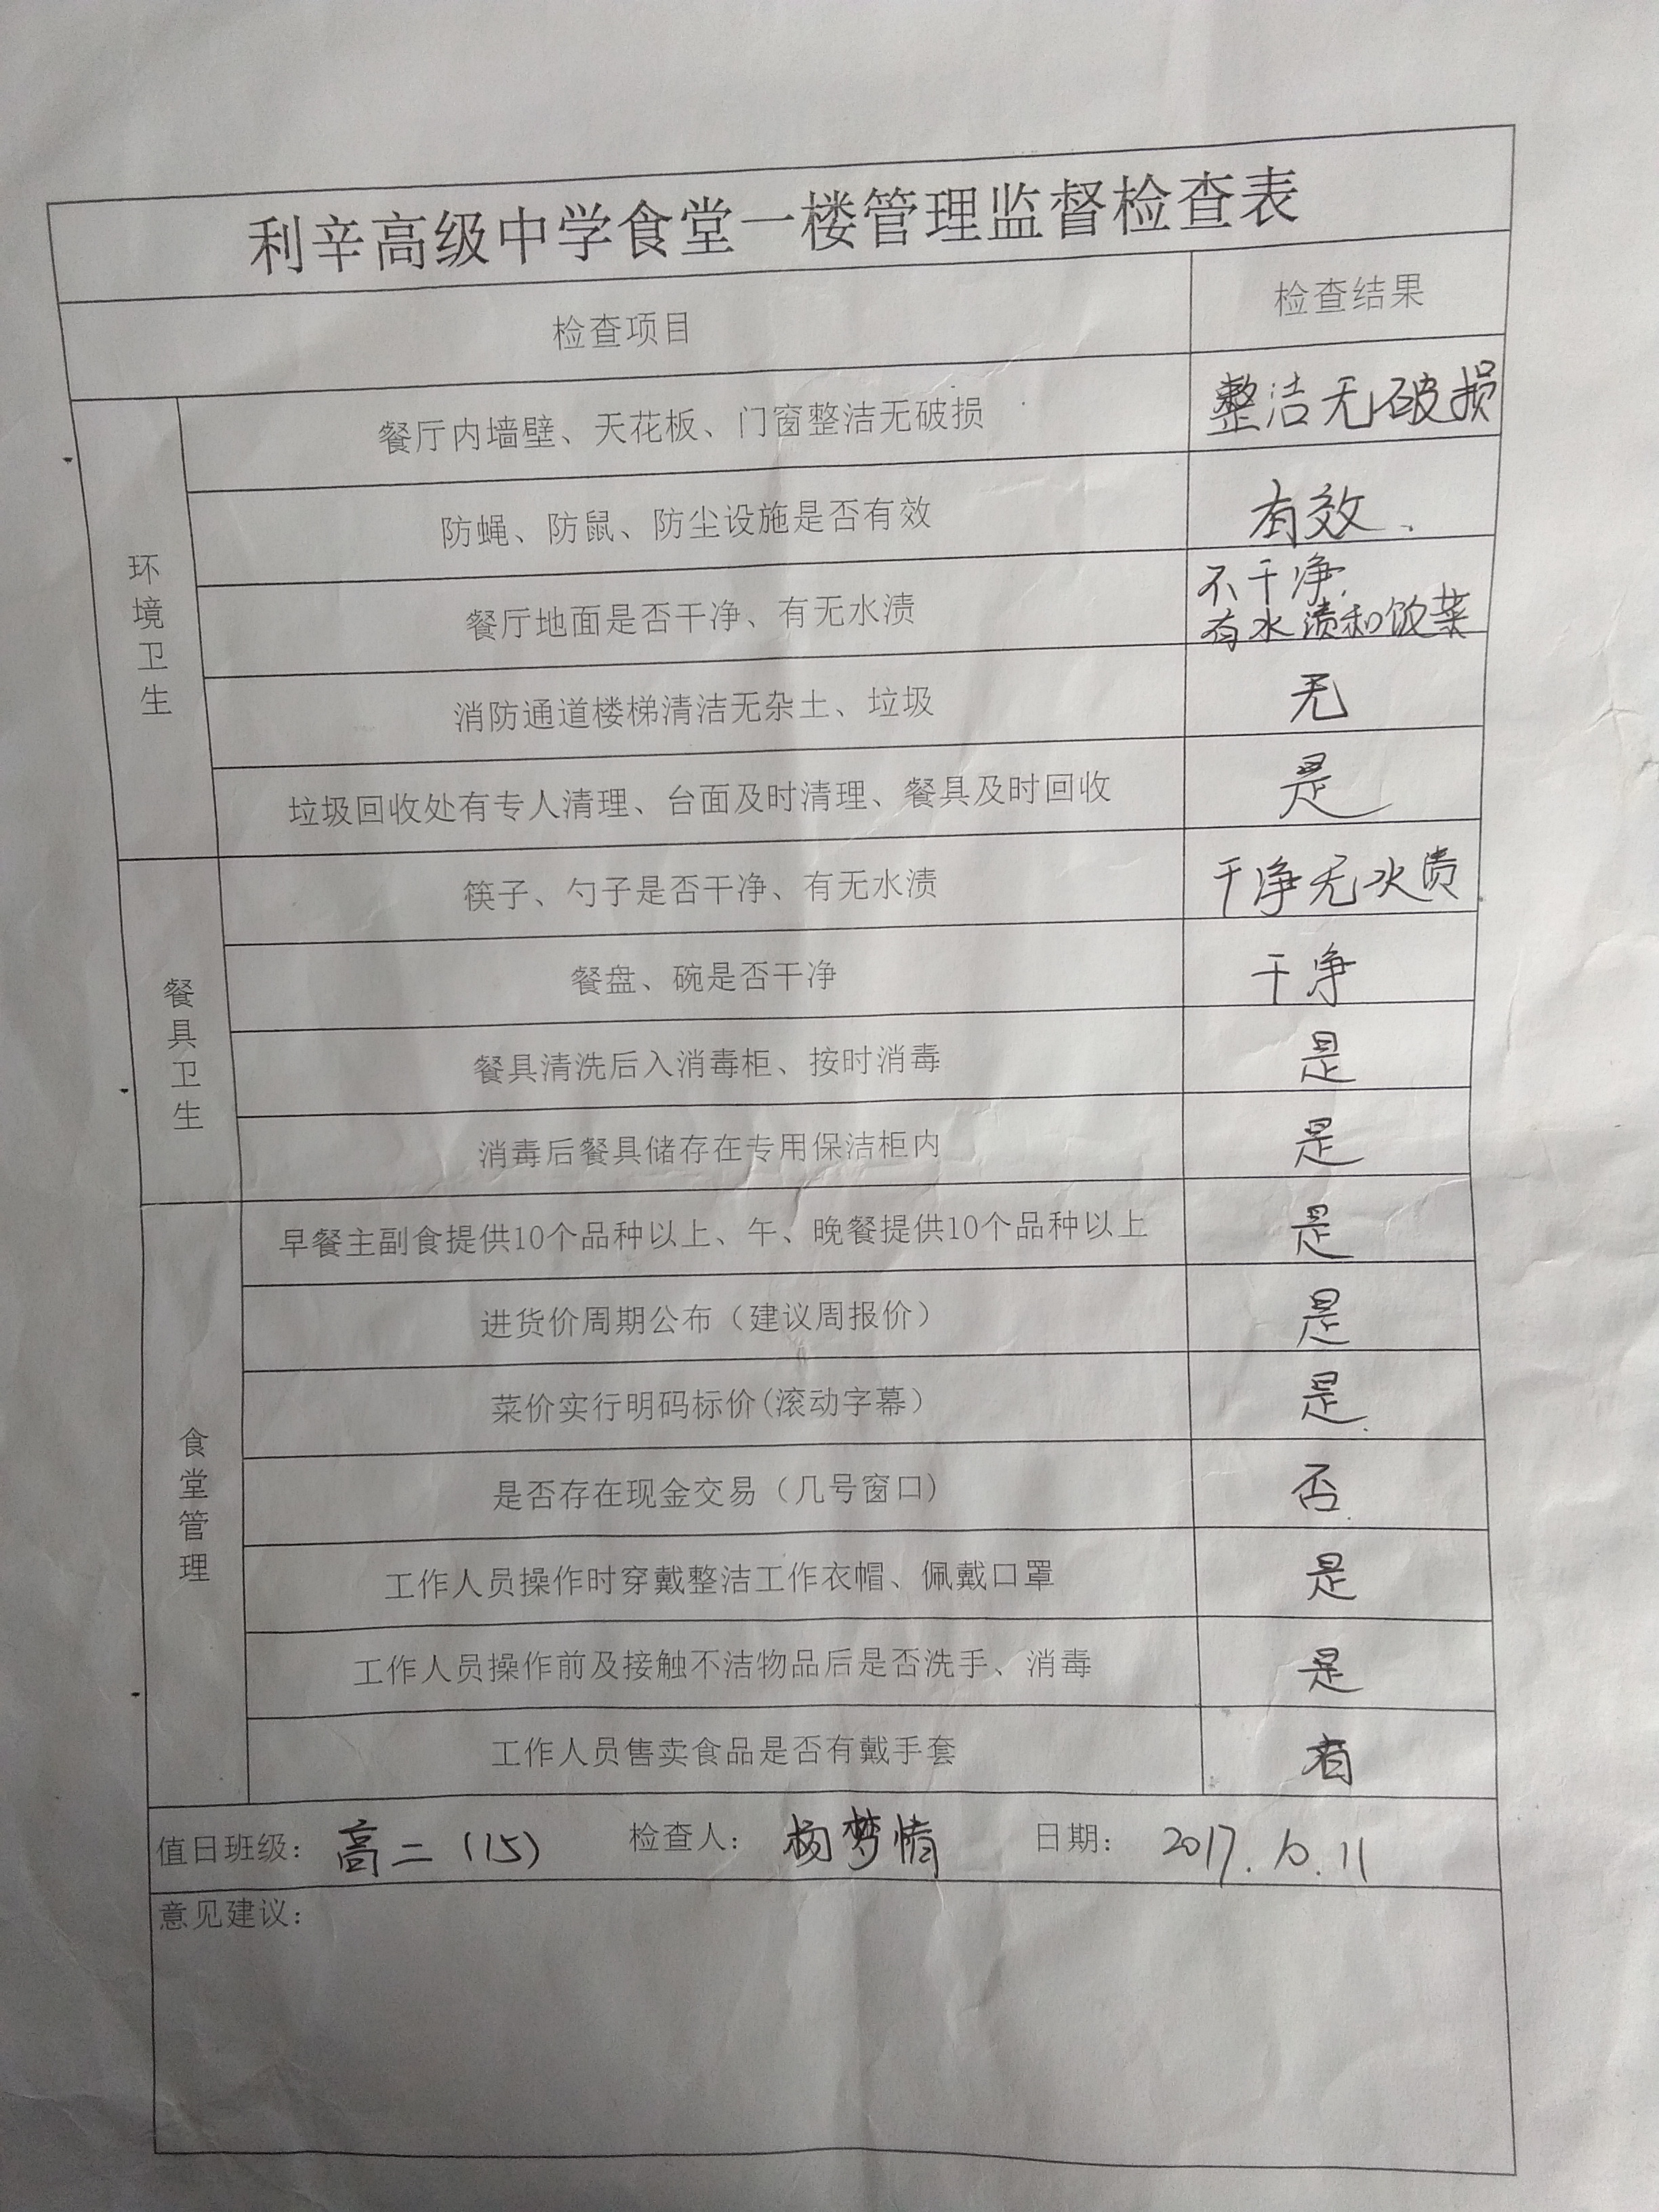 利辛高级中学食堂一楼管理监督检查表
检查项目 检查结果
环境卫生
餐厅内墙壁、天花板、门窗整洁无破损 整洁无破损
防蝇、防鼠、防尘设施是否有效 有效.
餐厅地面是否干净、有无水渍 不干净.
有水渍和饭菜
消防通道楼梯清洁无杂土、垃圾 无
垃圾回收处有专人清理、台面及时清理、餐具及时回收 是
餐具卫生
筷子、勺子是否干净、有无水渍 干净无水渍
餐盘、碗是否干净 干净
餐具清洗后入消毒柜、按时消毒 是
消毒后餐具储存在专用保洁柜内 是
食堂管理
早餐主副食提供10个品种以上、午、晚餐提供10个品种以上 是
进货价周期公布（建议周报价） 是
菜价实行明码标价(滚动字幕） 是
是否存在现金交易（几号窗口) 否
工作人员操作时穿戴整洁工作衣帽、佩戴口罩 是
工作人员操作前及接触不洁物品后是否洗手、消毒 是
工作人员售卖食品是否有戴手套 有
值日班级：高二（15） 检查人：杨梦情 日期：2017.10.11
意见建议：